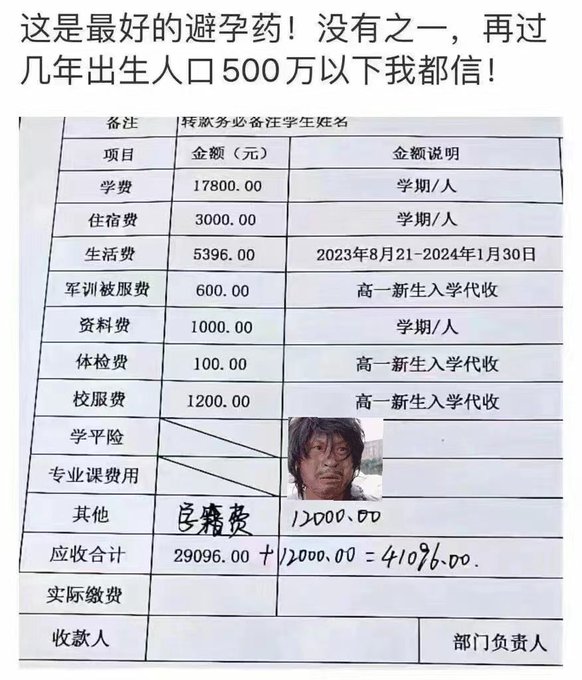 这是最好的避孕药！没有之一，再过
几年出生人口500万以下我都信！
备注 转款务必备注学生姓名
项目 金额（元） 金额说明
学费 17800.00 学期/人
住宿费 3000.00 学期/人
生活费 5396.00 2023年8月21-2024年1月30日
军训被服费 600.00 高一新生入学代收
资料费 1000.00 学期/人
体检费 100.00 高一新生入学代收
校服费 1200.00 高一新生入学代收
学平险
专业课费用
其他 学籍费 12000.00
应收合计 29096.00 +12000.00 =41096.00.
实际缴费
收款人 部门负责人